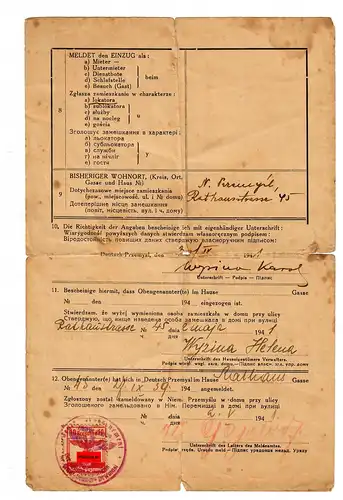 MELDET den EINZUG als:
a) Mieter —
b) Untermieter
c) Dienstbote
d) Schlafstelle
e) Besuch (Gast)
beim
8
Zgłasza zamieszkanie w charakterze:
a) lokatora
b) sublokatora
c) służby
d) na nocleg
e) gościa
u
Зголошує замешкання в характері:
а) льокатора
б) субльокатора
в) служби
г) на нічліг
г) гостя
у
9
BISHERIGER WOHNORT, (Kreis, Ort,
Gasse und Haus №)
Dotychczasowe miejsce zamieszkania
(pow., miejscowość, ul. i № domu)
Дотеперішнє місце замешкання
(повіт, місцевість, вул. і ч. дому)
N. Przemyśl,
Rathausstrasse 45
10. Die Richtigkeit der Angaben bescheinige ich mit eigenhändiger Unterschrift:
Wiarygodność powyższych danych stwierdzam własnoręcznym podpisem:
Відородність повищих даних стверджую власноручним підписом:
Deutsch Przemysl, am
1941
Wyzina Karol
Unterschrift — Podpis — Підпис
11. Bescheinige hiermit, dass Obengenannter(e) im Hause
Gasse
№ am 194 eingezogen ist.
Stwierdzam, że wyżej wymieniona osoba zamieszkała w domu przy ulicy
Стверджую, що вище наведена особа замешкала в домі при вулиці
Rathausstrasse № 45 dnia 2 maja 1941
Wyzina Helena
Unterschrift des Hauseigentümers Verwalters.
12. Obengenannter(e) hat sich in Deutsch Przemysl im Hause Rathaus Gasse
№ 45 am 194 angemeldet.
Zgłoszony został zameldowany w Niem. Przemyślu w domu przy ulicy
Зголошеного замельдовано в Нім. Перемишлі в домі при вулиці
№ dnia 2. V 194
Unterschrift des Leiters des Meldeamtes.